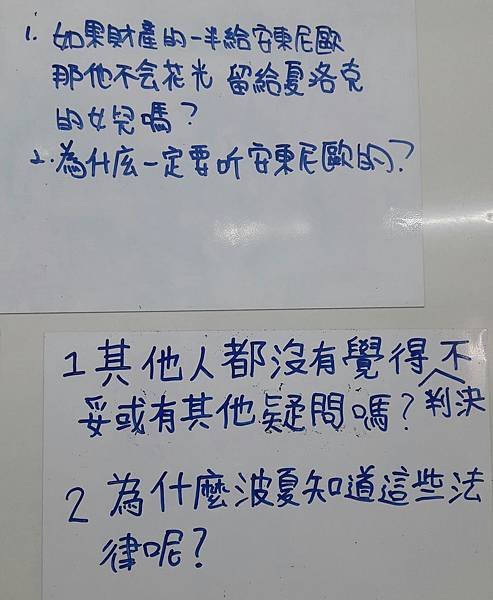 1. 如果財產的一半給安東尼歐
那他不会花光 留給夏洛克
的女兒嗎？
2. 為什庅一定要听安東尼歐的？
1 其他人都沒有覺得不
妥或有其他疑問嗎？判決
2 為什麼波夏知道這些法
律呢？